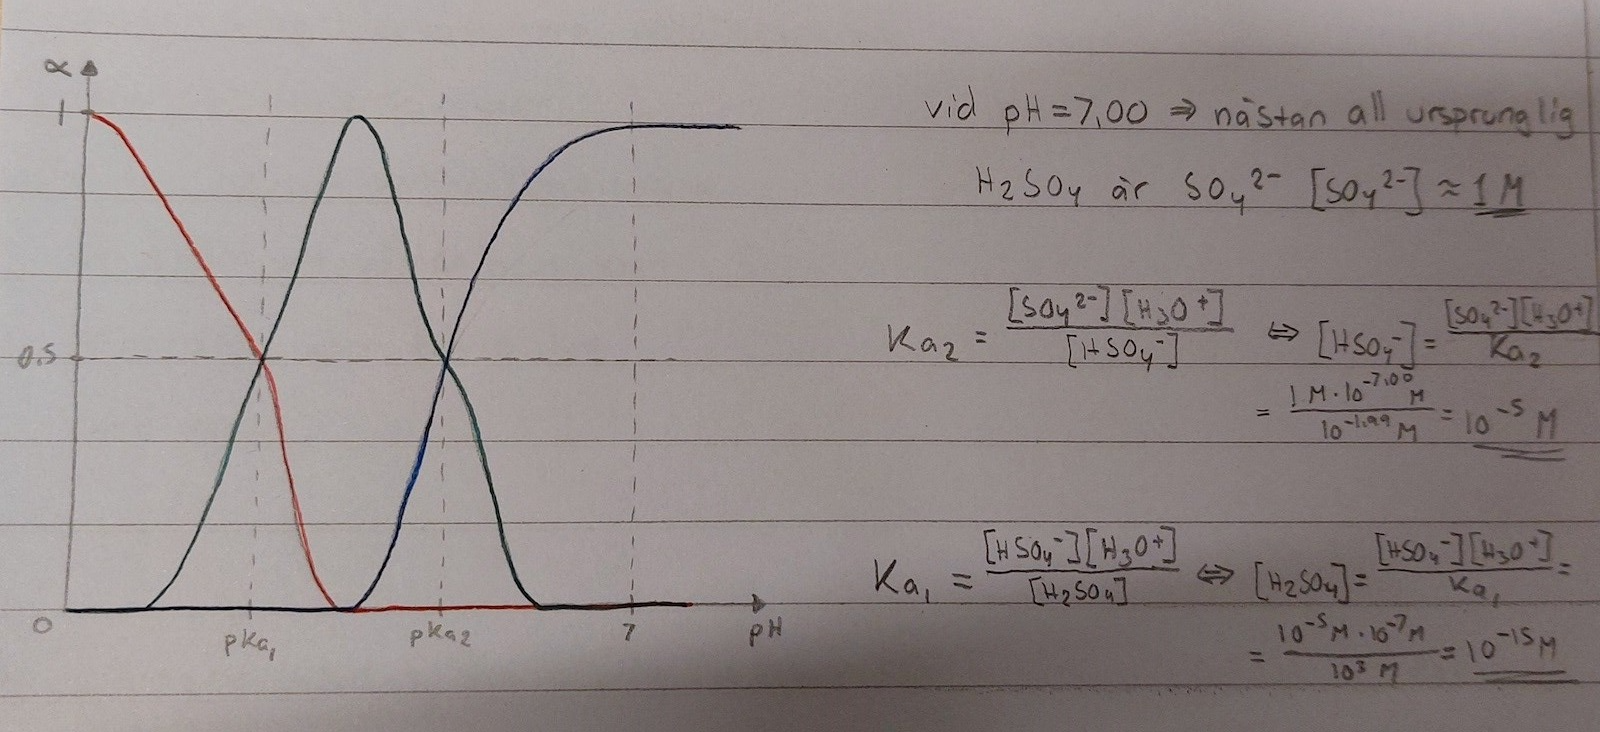 α
1
0.5
0
pKa₁
pKa₂
7
pH
vid pH=7,00 ⇒ nästan all ursprunglig
H₂SO₄ är SO₄²⁻ [SO₄²⁻] ≈ 1 M
Ka₂ = [SO₄²⁻][H₃O⁺] / [HSO₄⁻] ⇔ [HSO₄⁻] = [SO₄²⁻][H₃O⁺] / Ka₂
= 1 M · 10⁻⁷·⁰⁰ M / 10⁻¹·⁹⁹ M = 10⁻⁵ M
Ka₁ = [HSO₄⁻][H₃O⁺] / [H₂SO₄] ⇔ [H₂SO₄] = [HSO₄⁻][H₃O⁺] / Ka₁ =
= 10⁻⁵ M · 10⁻⁷ M / 10³ M = 10⁻¹⁵ M